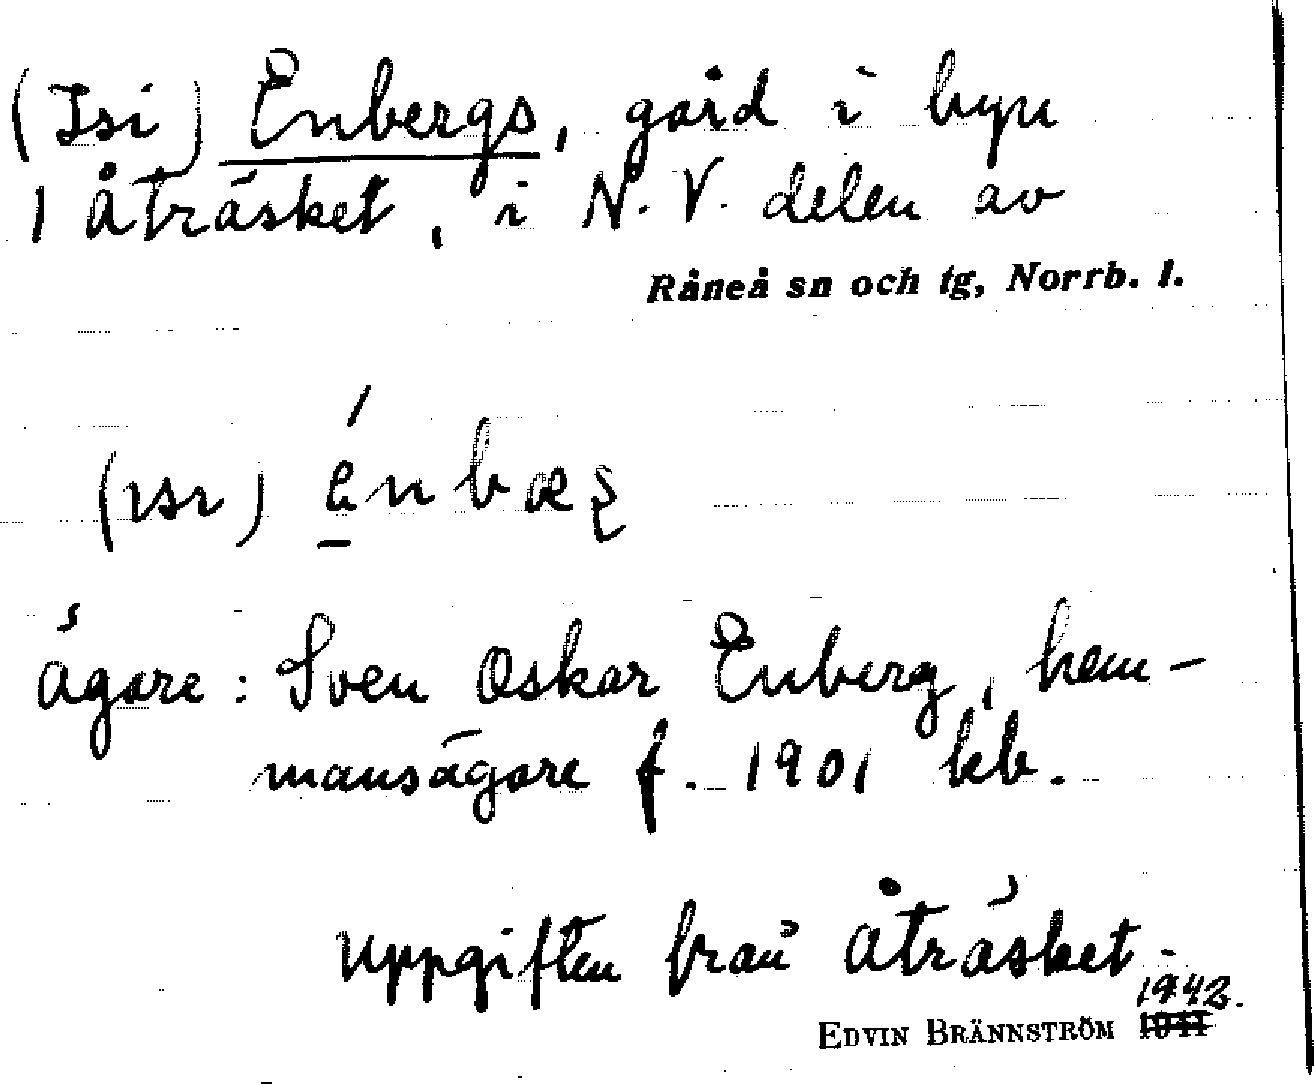 (Isi) Enbergs, gård i byn
1 Åträsket, i N.V. delen av
Råneå sn och tg, Norrb. l.
(ısı) énbæş
Ägare: Sven Oskar Enberg, hem-
mansägare f. 1901 kb.
Uppgiften från Åträsket.
1942.
EDVIN BRÄNNSTRÖM 1941